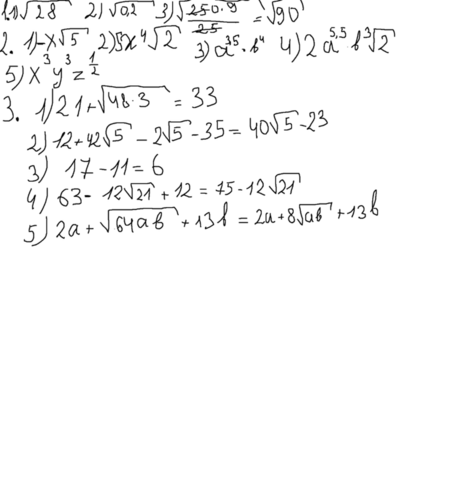 1.1) √28 2) √0,2 3) √(250·9/25) = √90
2. 1) -x√5 2) 5x⁴√2 3) a³⁵·b⁴ 4) 2a^5,5·b³√2
5) x³y³z^½
3. 1) 21+√48·3 = 33
2) 12+42√5 - 2√5 - 35 = 40√5 - 23
3) 17 - 11 = 6
4) 63 - 12√21 + 12 = 75 - 12√21
5) 2a + √64ab + 13b = 2a + 8√ab + 13b